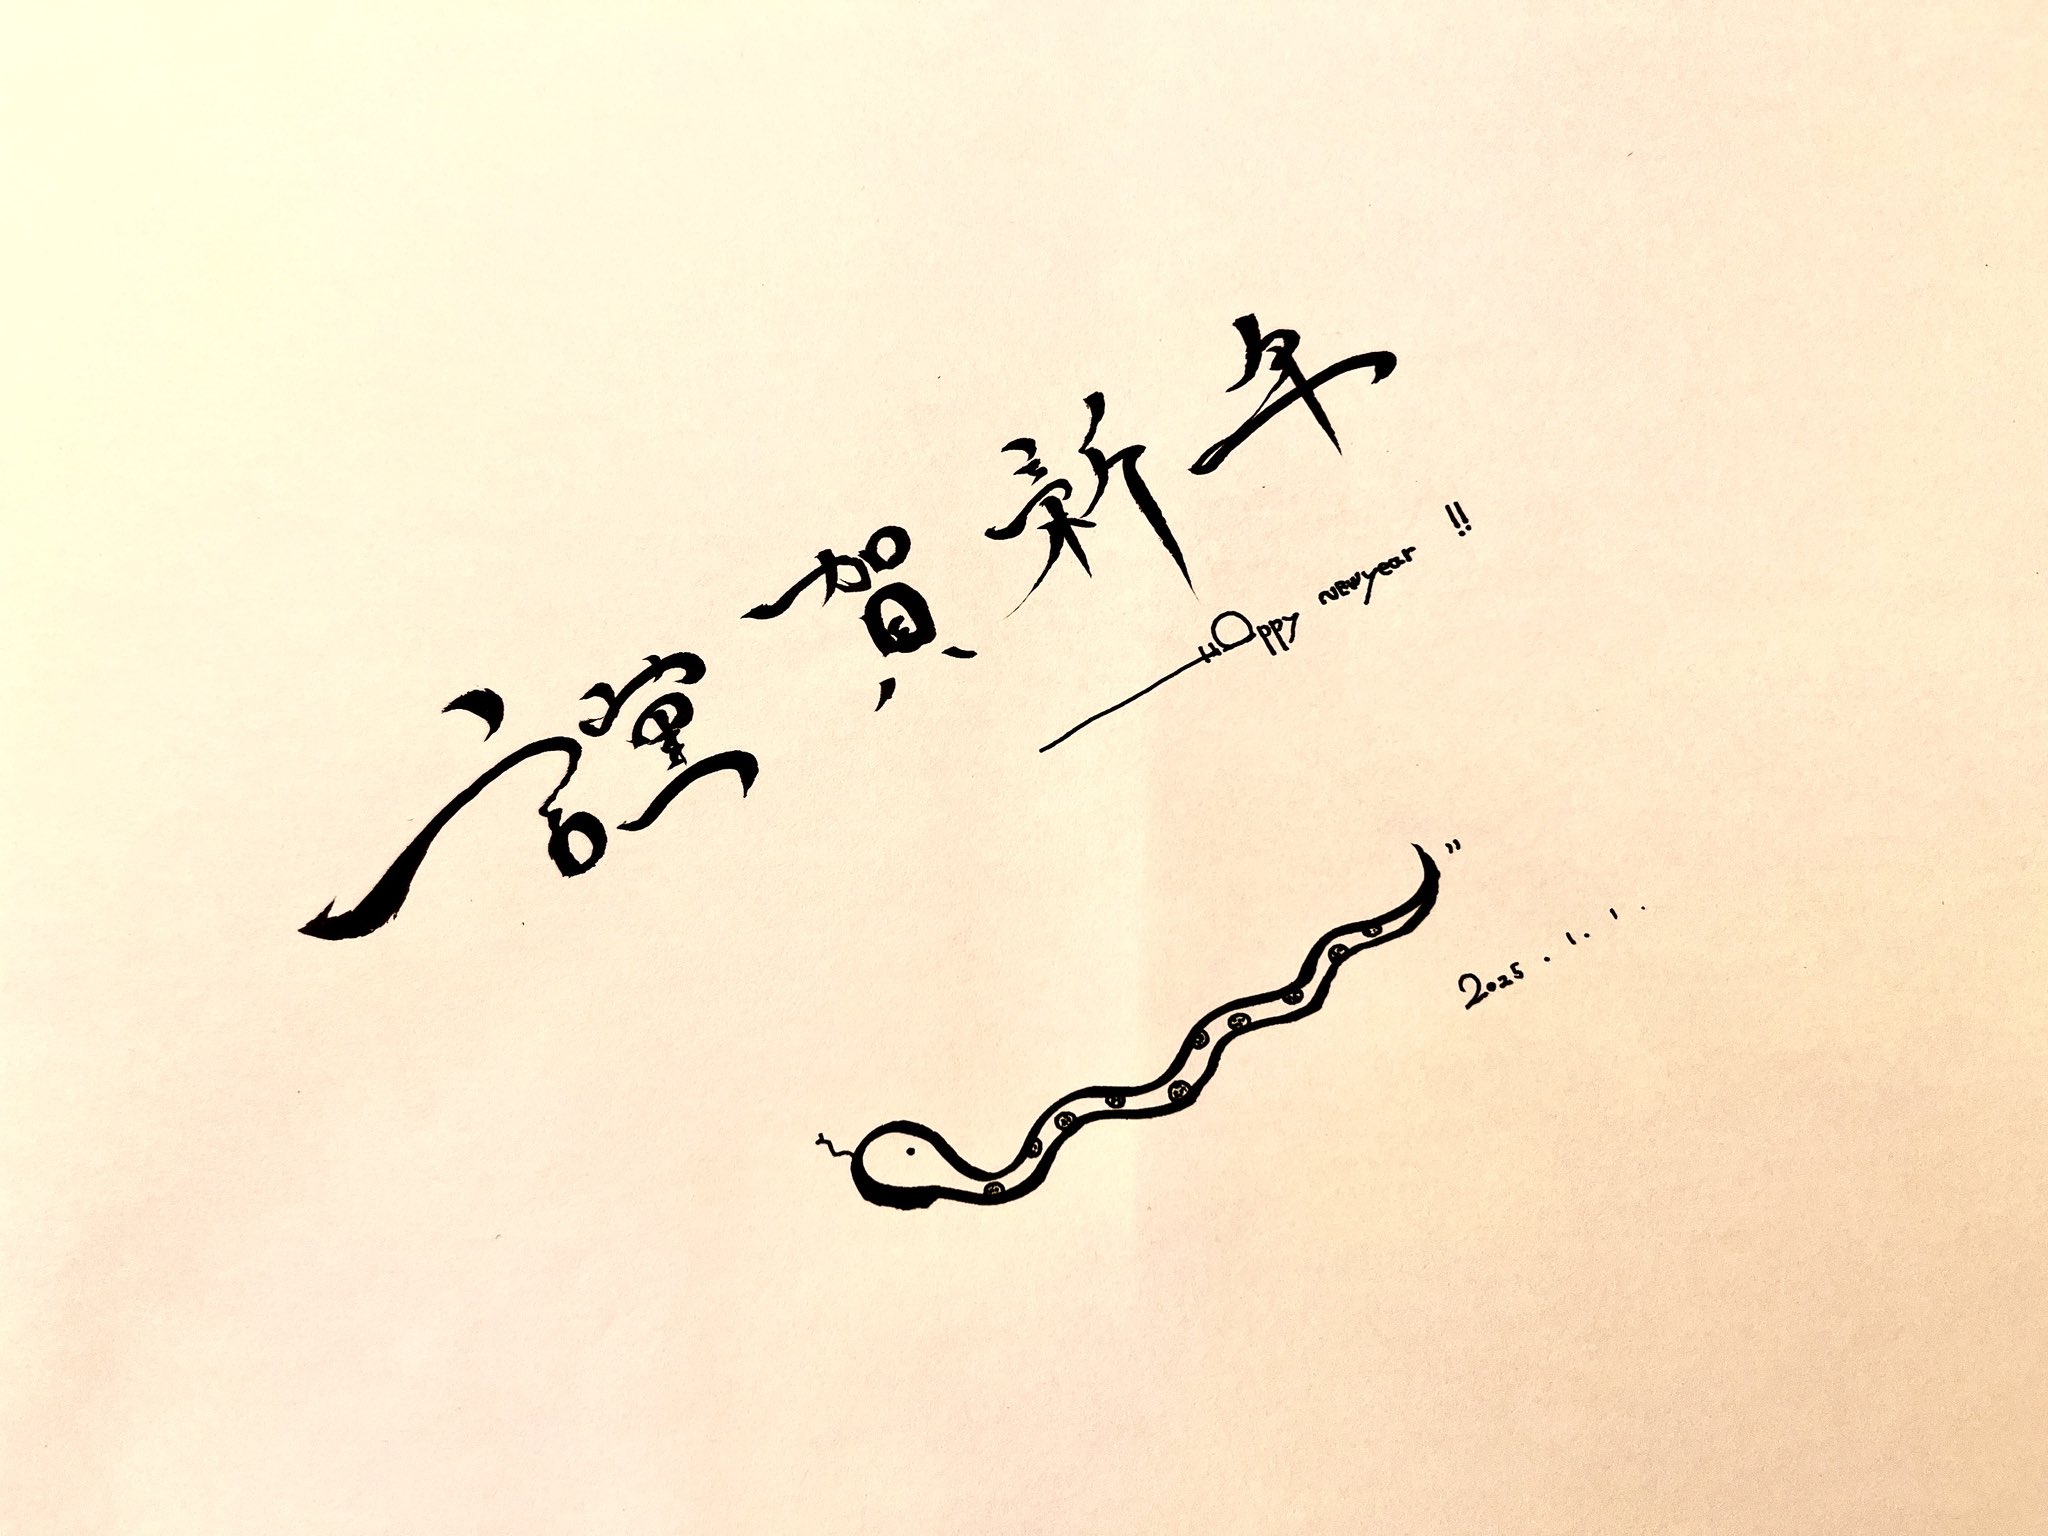 謹賀新年
Happy NEW year !!
2025.1.1.